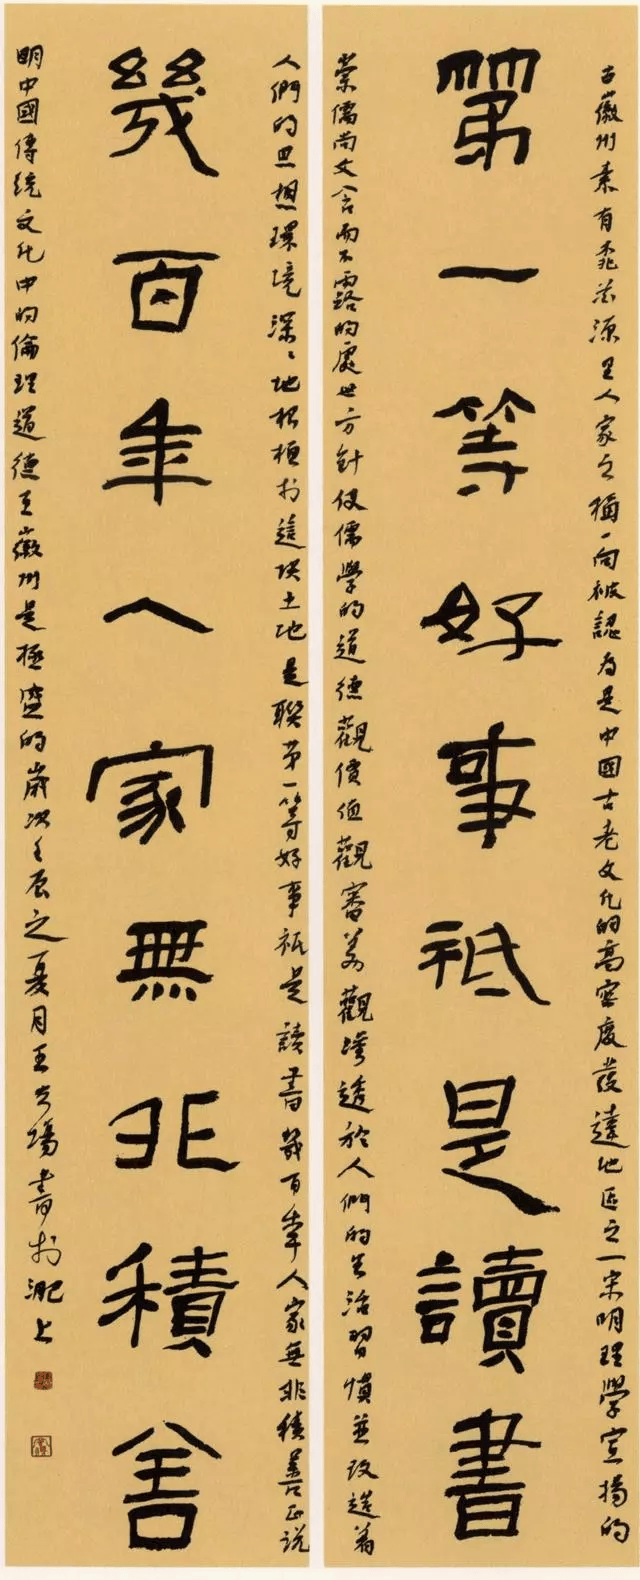 古徽州素有桃花源里人家之稱一向被認為是中國古老文化的高密度發達地區之一宋明理學宣揚的
第一等好事祗是讀書
崇儒尚文含而不露的處世方針使儒學的道德觀價值觀審美觀滲透於人們的生活習慣並改造着
人們的思想環境深〻地根植於這塊土地是聯第一等好事祗是讀書幾百年人家無非積善正說
幾百年人家無非積善
明中國傳統文化中的倫理道德在徽州是極盛的歲次壬辰之夏月王書於淝上